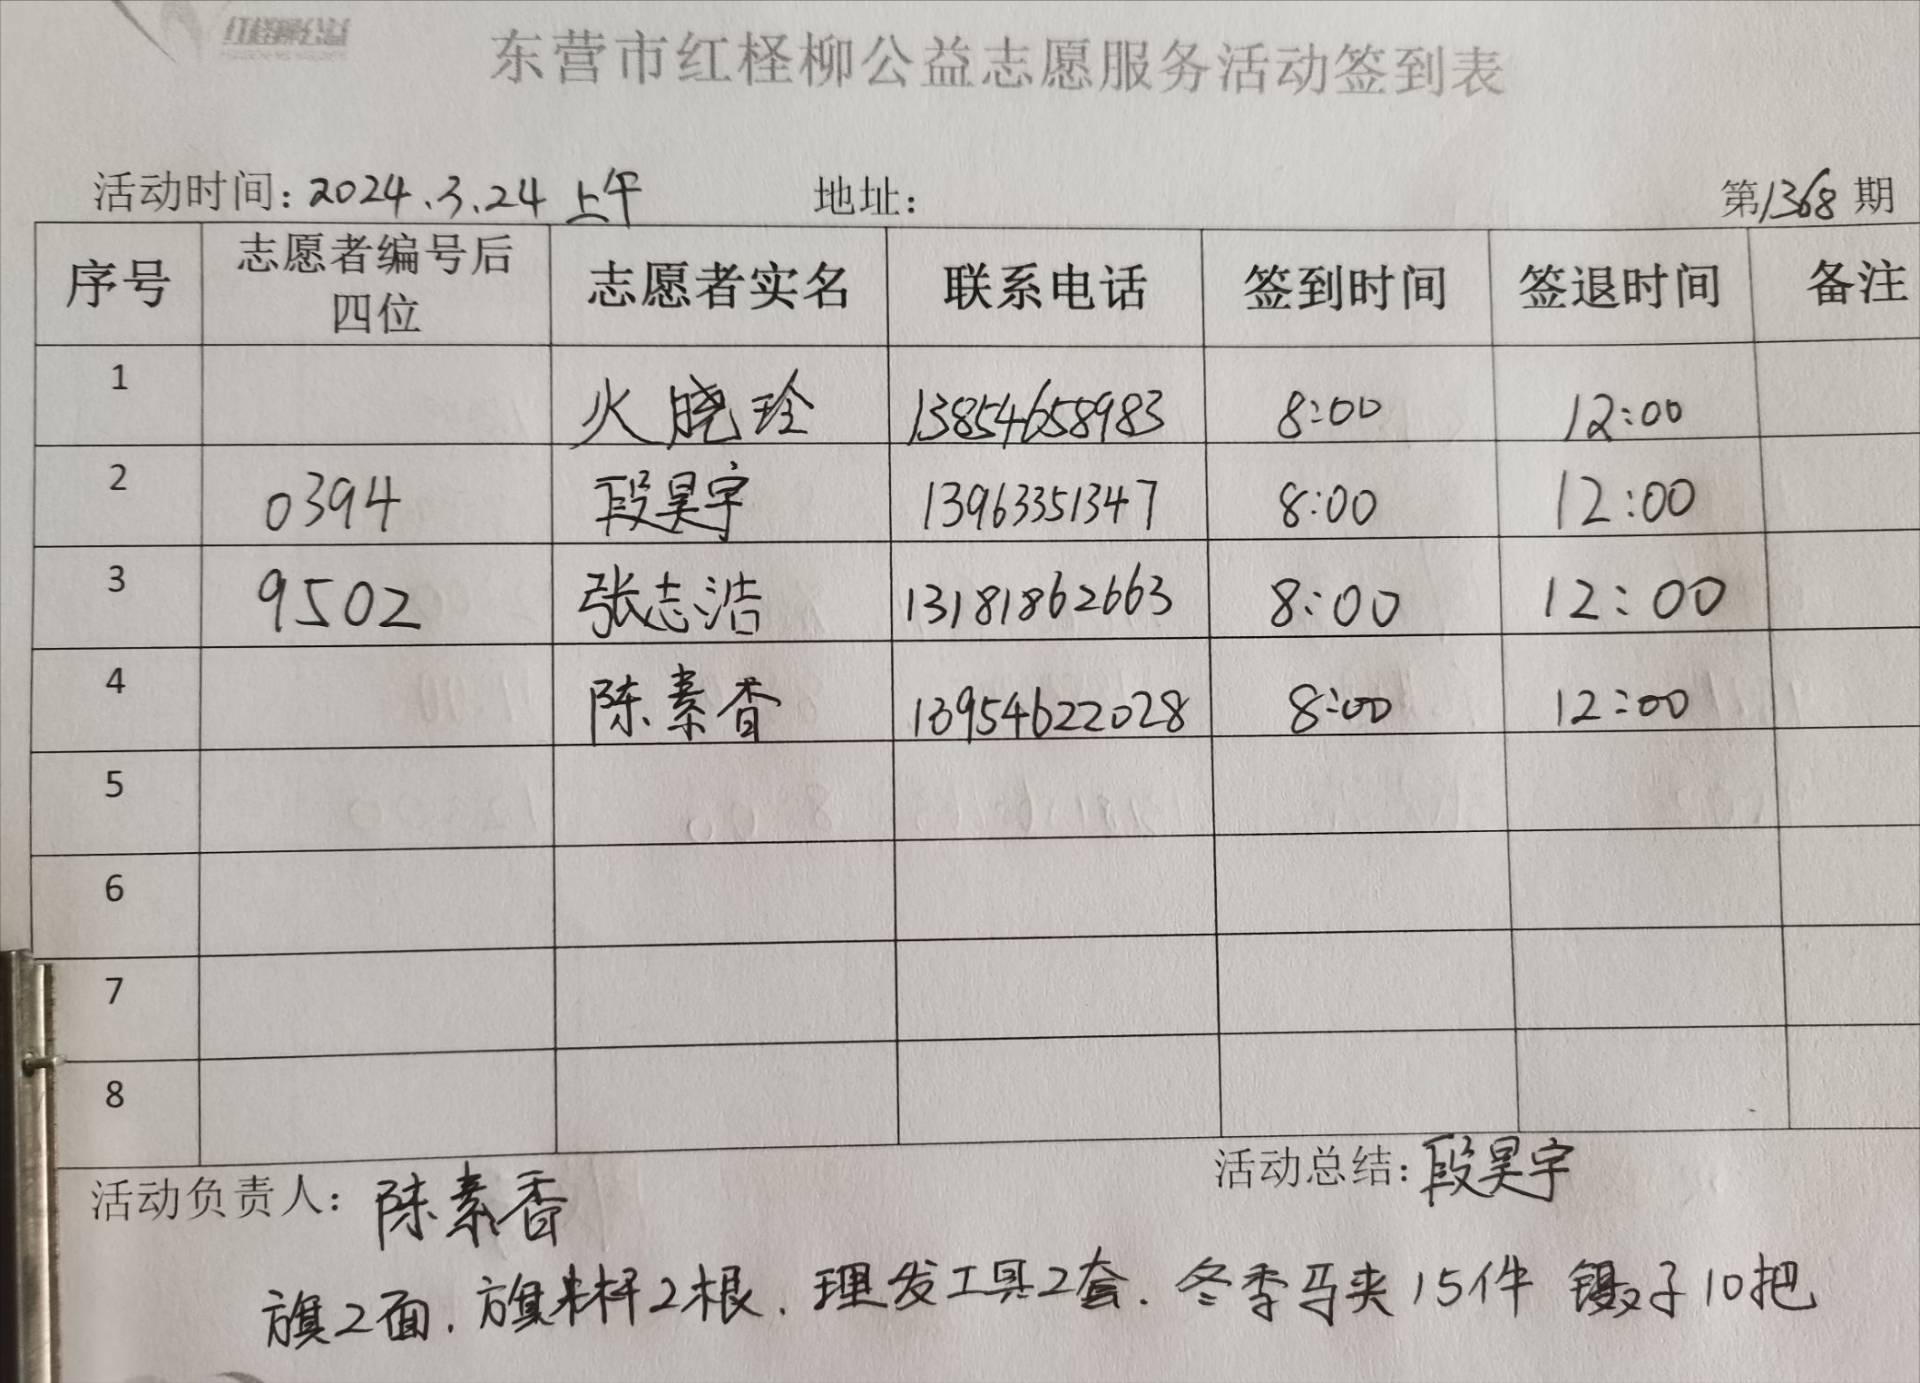 红柽柳公益
东营市红柽柳公益志愿服务活动签到表
活动时间：2024.3.24 上午 地址： 第1368期
序号 志愿者编号后四位 志愿者实名 联系电话 签到时间 签退时间 备注
1 火晓玲 13854658983 8:00 12:00
2 0394 段昊宇 13963351347 8:00 12:00
3 9502 张志浩 13181862663 8:00 12:00
4 陈素香 13954622028 8:00 12:00
5
6
7
8
活动负责人：陈素香 活动总结：段昊宇
旗2面，旗杆2根，理发工具2套，冬季马夹15件 镊子10把